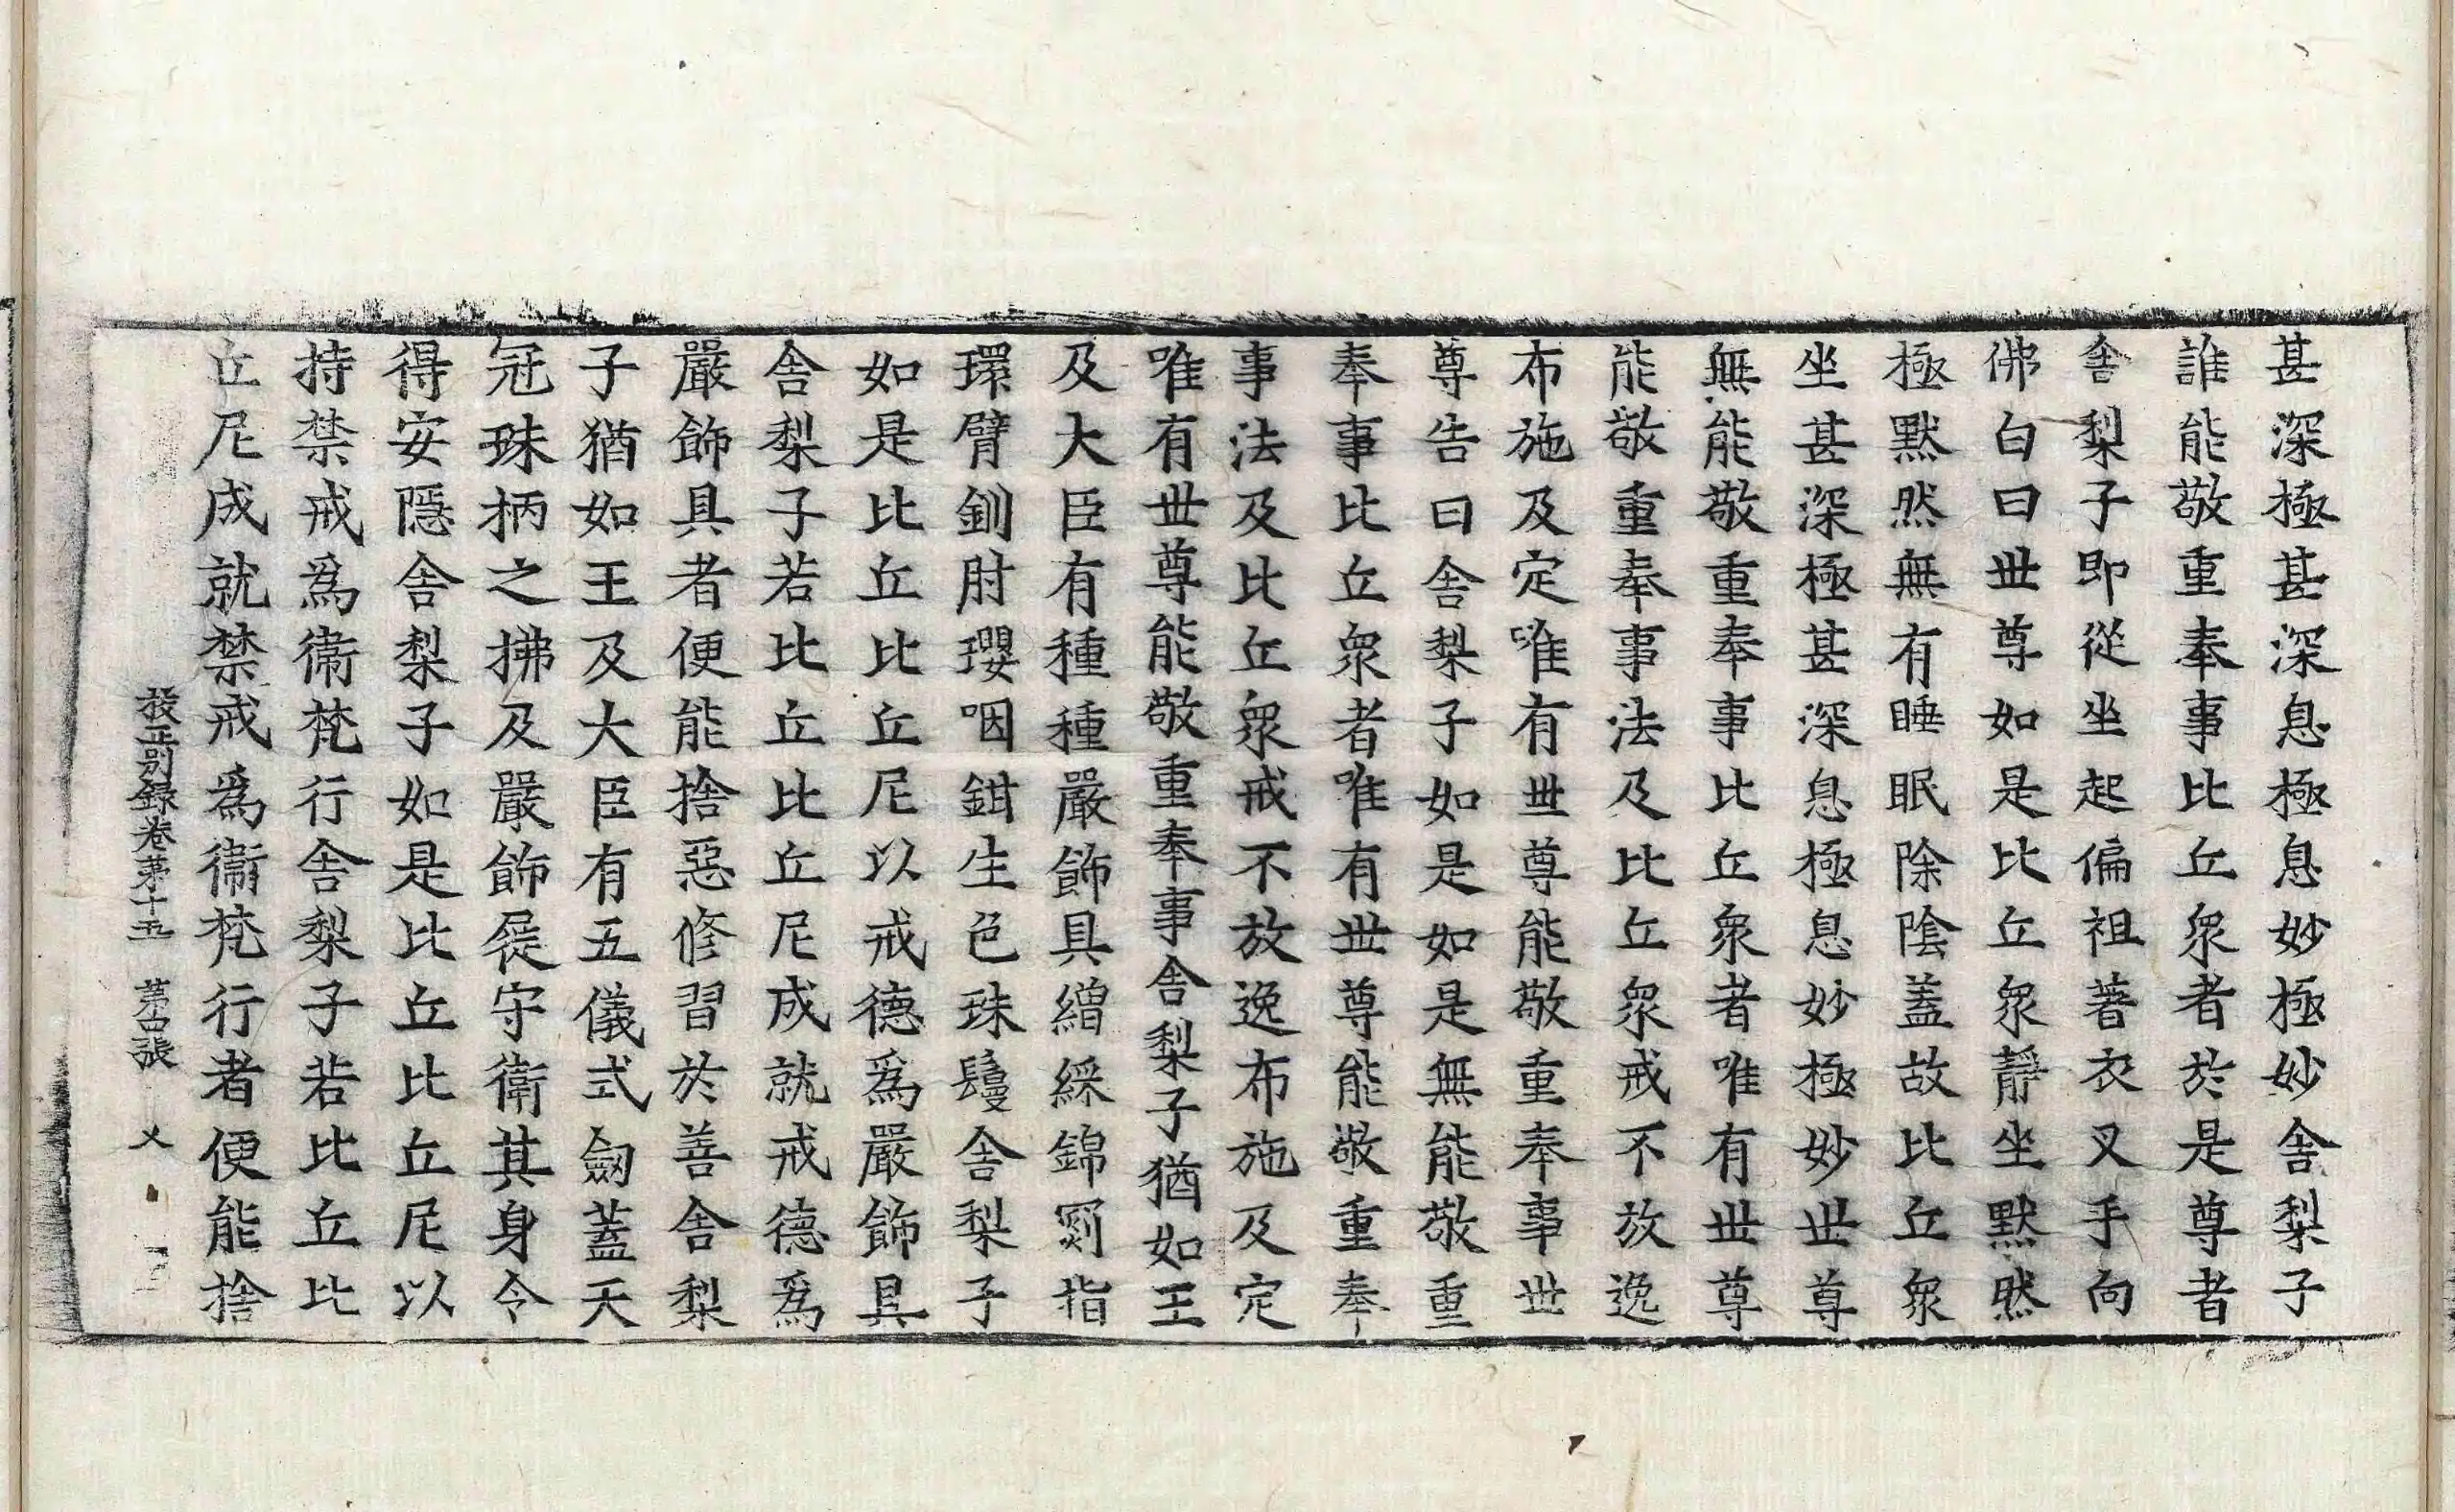 甚深極甚深息極息妙極妙舍梨子
誰能敬重奉事比丘衆者於是尊者
舍梨子即從坐起偏袒著衣叉手向
佛白曰世尊如是比丘衆靜坐默然
極默然無有睡眠除陰蓋故比丘衆
坐甚深極甚深息極息妙極妙世尊
無能敬重奉事比丘衆者唯有世尊
能敬重奉事法及比丘衆戒不放逸
布施及定唯有世尊能敬重奉事世
尊告曰舍梨子如是如是無能敬重
奉事比丘衆者唯有世尊能敬重奉
事法及比丘衆戒不放逸布施及定
唯有世尊能敬重奉事舍梨子猶如王
及大臣有種種嚴飾具繒綵錦罽指
環臂釧肘瓔咽鉗生色珠鬘舍梨子
如是比丘比丘尼以戒德爲嚴飾具
舍梨子若比丘比丘尼成就戒德爲
嚴飾具者便能捨惡修習於善舍梨
子猶如王及大臣有五儀式劒蓋天
冠珠柄之拂及嚴飾屣守衛其身令
得安隱舍梨子如是比丘比丘尼以
持禁戒爲衞梵行舍梨子若比丘比
丘尼成就禁戒爲衞梵行者便能捨
挍正別録卷苐十五 苐四張 乂